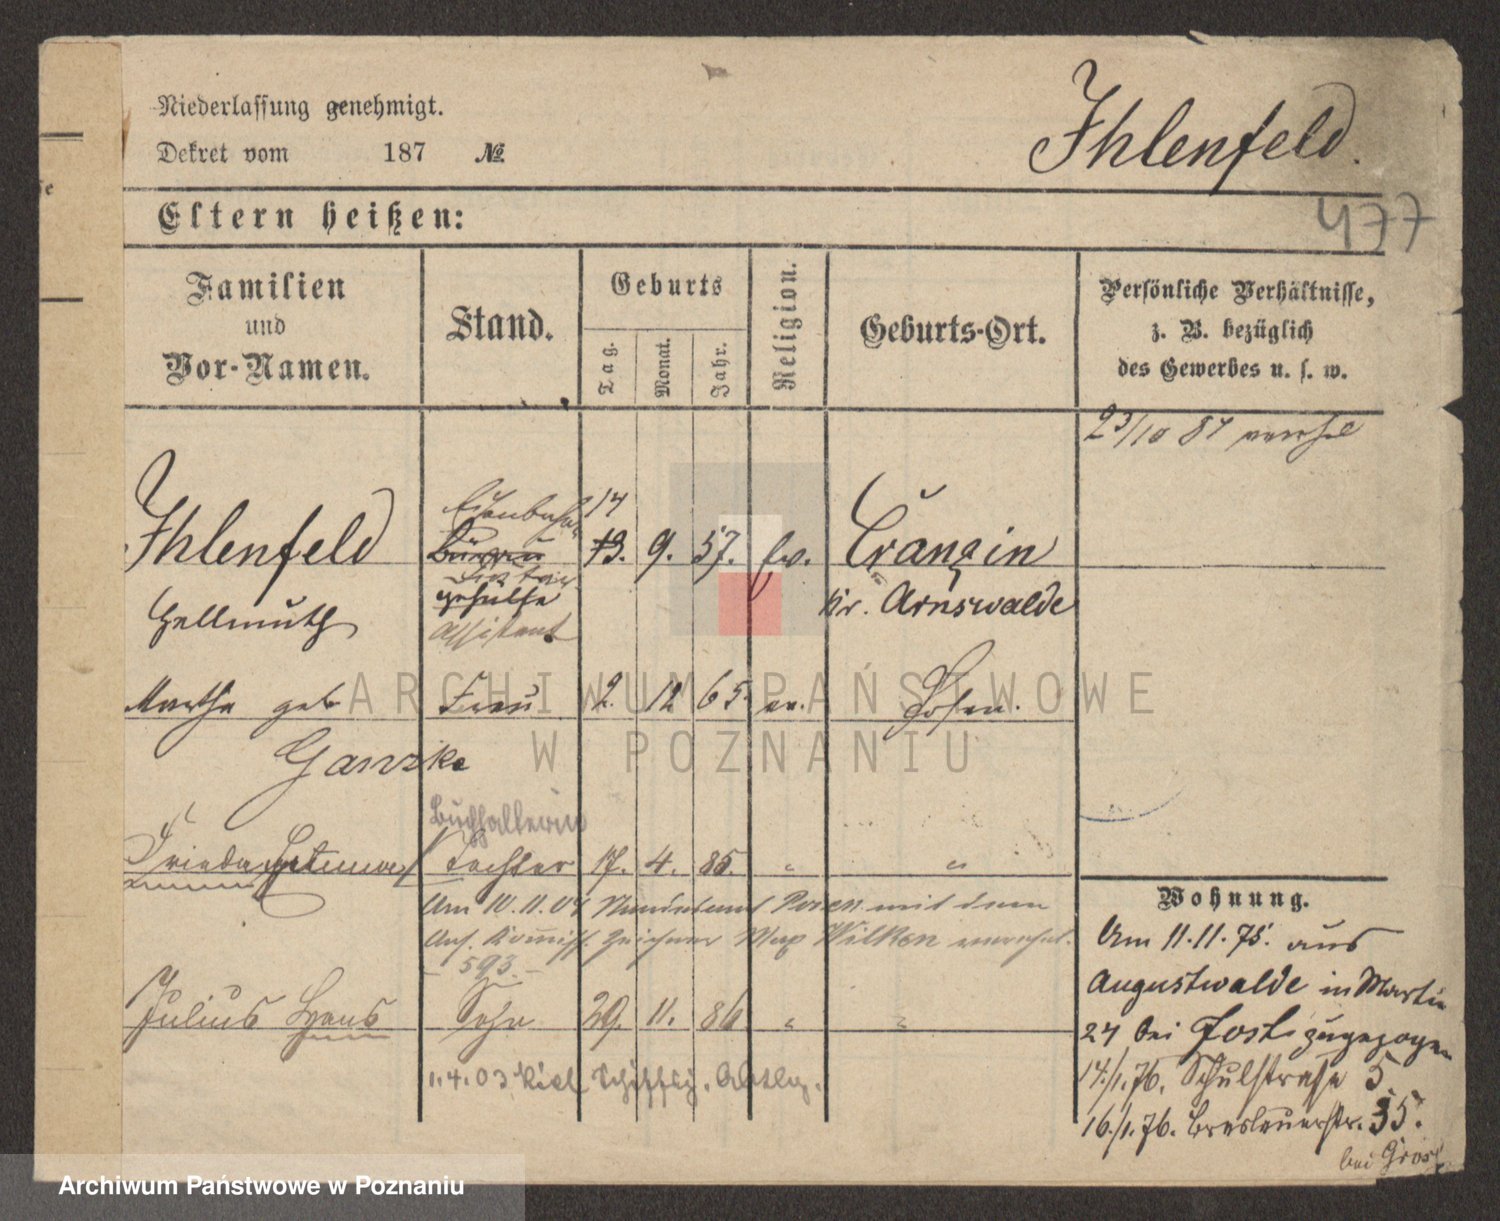 Niederlassung genehmigt.
Dekret vom 187 No
Ihlenfeld.
477
Eltern heißen:
Familien
und
Vor-Namen.
Stand.
Geburts
Tag.
Monat.
Jahr.
Religion.
Geburts-Ort.
Persönliche Verhältnisse,
z. B. bezüglich
des Gewerbes u. s. w.
23/10 84 verehel
Eisenbahn 14
Ihlenfeld Büreau 13. 9. 57. ev. Cranzin
Hellmuth gehülfe Kr. Arnswalde
Assistent
Martha geb Frau 2. 12 65. ev. Posen.
Ganzke
Buchhalterin
Frieda Tochter 17. 4. 85. " "
Am 10.11.04 Standesamt Posen mit dem
Zeichner Max Wilken verehel.
– 593. –
Julius Hans Sohn 29. 11. 86 " "
1.4.03 Kiel Schiffsj. Abtlg.
Wohnung.
Am 11.11.75. aus
Augustwalde in Martin
24 bei Jost zugezogen
14./1.76. Schulstraße 5.
16./1.76. Breslauerstr. 35.
bei Gros
ARCHIWUM PAŃSTWOWE
W POZNANIU
Archiwum Państwowe w Poznaniu